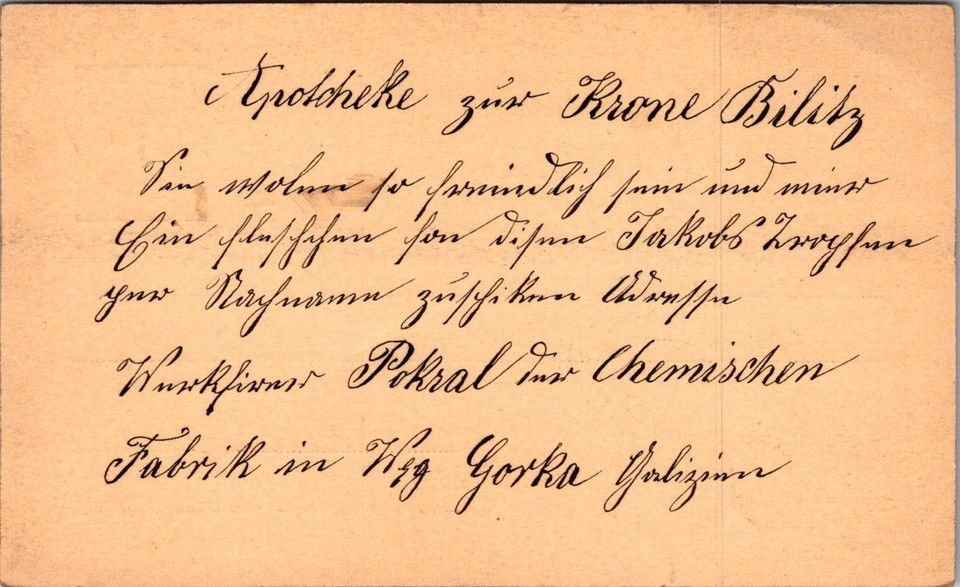 Apotheke zur Krone Bilitz
Sie wolen so freindlich sein und meier
Ein flaschchen fon disen Jakobs Tropfen
per Nachname zuschiken Adresse
Werkfirer Pokral der Chemischen
Fabrik in Wgg Gorka Galizien